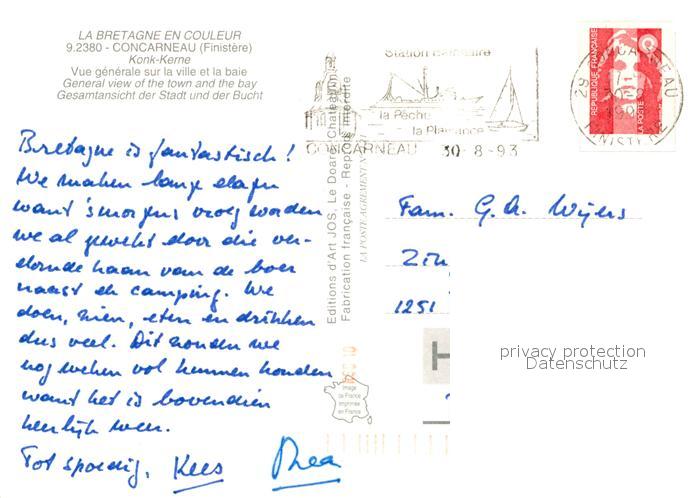 LA BRETAGNE EN COULEUR
9.2380 - CONCARNEAU (Finistère)
Konk-Kerne
Vue générale sur la ville et la baie
General view of the town and the bay
Gesamtansicht der Stadt und der Bucht
Bretagne is fantastisch!
We maken lange dagen
want 's morgens vroeg worden
we al gewekt door die ver-
domde haan van de boer
naast de camping. We
doen, zien, eten en drinken
dus veel. Dit zouden we
nog weken vol kunnen houden
want het is bovendien
heerlijk weer.
Tot spoedig, Kees Thea
Editions d'Art JOS, Le Doaré, Châteaulin
Fabrication française - Reproduction interdite
LA POSTE AGREMENT N°
Station balnéaire
la Pêche
la Plaisance
CONCARNEAU 30-8-93
REPUBLIQUE FRANÇAISE
LA POSTE
CONCARNEAU
29 FINISTERE
Fam. G.A. Wijers
1251
H
Image
de France
imprimée
en France
privacy protection
Datenschutz